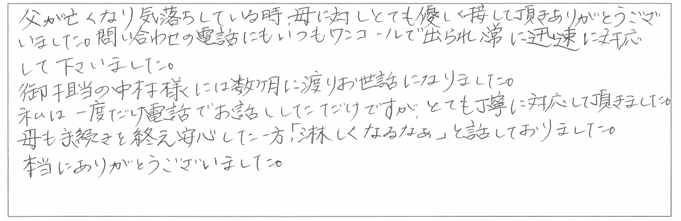 父が亡くなり気落ちしている時、母に対しとても優しく接して頂きありがとうござ
いました。問い合わせの電話にもいつもワンコールで出られ、常に迅速に対応
して下さいました。
御担当の中村様には数ヶ月に渡りお世話になりました。
私は一度だけ電話でお話ししただけですが、とても丁寧に対応して頂きました。
母も手続きを終え安心した一方、「淋しくなるなぁ」と話しておりました。
本当にありがとうございました。